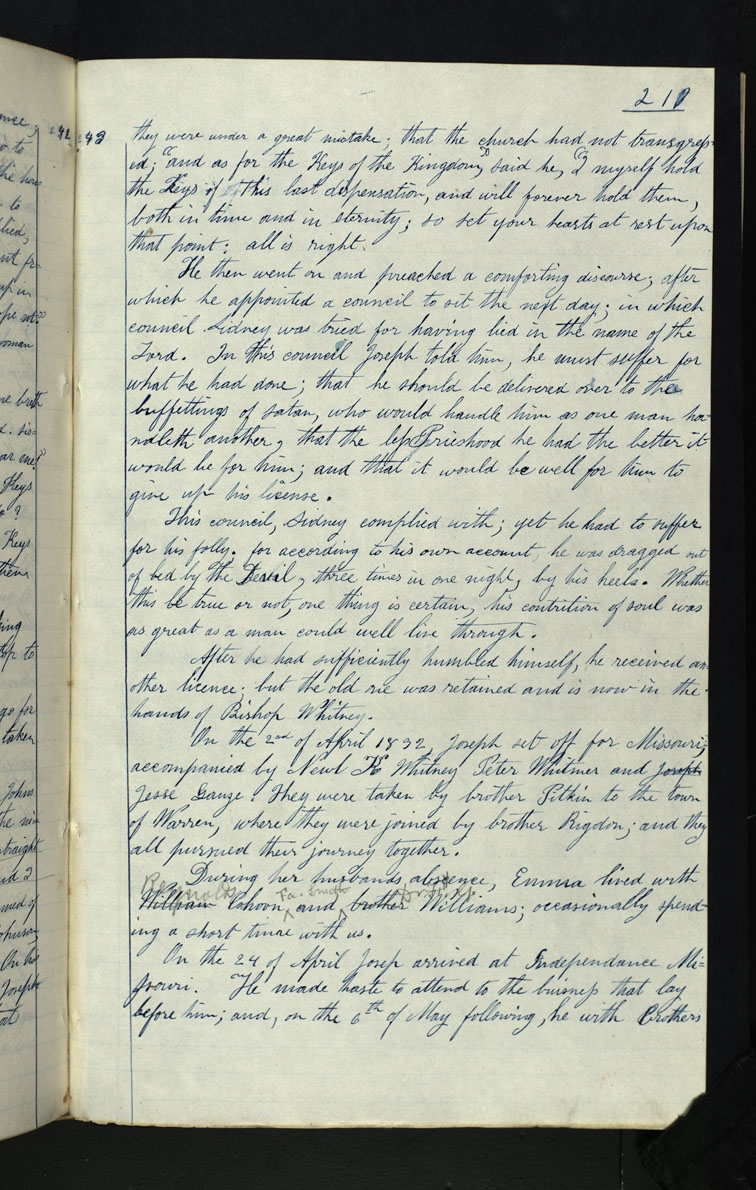 211
42 43 they were under a great mistake; that the church had not transgress-
ed; "and as for the Keys of the Kingdom," said he, "I myself hold
the Keys of this last dispensation, and will forever hold them,
both in time and in eternity; so set your hearts at rest upon
that point: all is right.
He then went on and preached a comforting discourse; after
which he appointed a council to sit the next day; in which
council Sidney was tried for having lied in the name of the
Lord. In this council Joseph told him, he must suffer for
what he had done; that he should be delivered over to the
buffettings of satan, who would handle him as one man ha-
ndleth another, that the less Priesthood he had the better it
would be for him; and that it would be well for him to
give up his license.
This council, Sidney complied with; yet he had to suffer
for his folly. for according to his own account, he was dragged out
of bed by the Devil, three times in one night, by his heels. Whether
this be true or not, one thing is certain, his contrition of soul was
as great as a man could well live through.
After he had sufficiently humbled himself, he received an-
other licence; but the old one was retained and is now in the
hands of Bishop Whitney.
On the 2nd of April 1832, Joseph set off for Missouri;
accompanied by Newl K Whitney Peter Whitmer and Joseph
Jesse Gauze. They were taken by brother Pitkin to the town
of Warren, where they were joined by brother Rigdon; and they
all pursued their journey together.
During her husbands absence, Emma lived with
Reynolds Fa. Smith
William Cahoon, and, brother Williams; occasionally spend-
ing a short time with us.
On the 24 of April Josep arrived at Independance Mi-
ssouri. He made haste to attend to the buisness that lay
before him; and, on the 6th of May following, he with Brothers